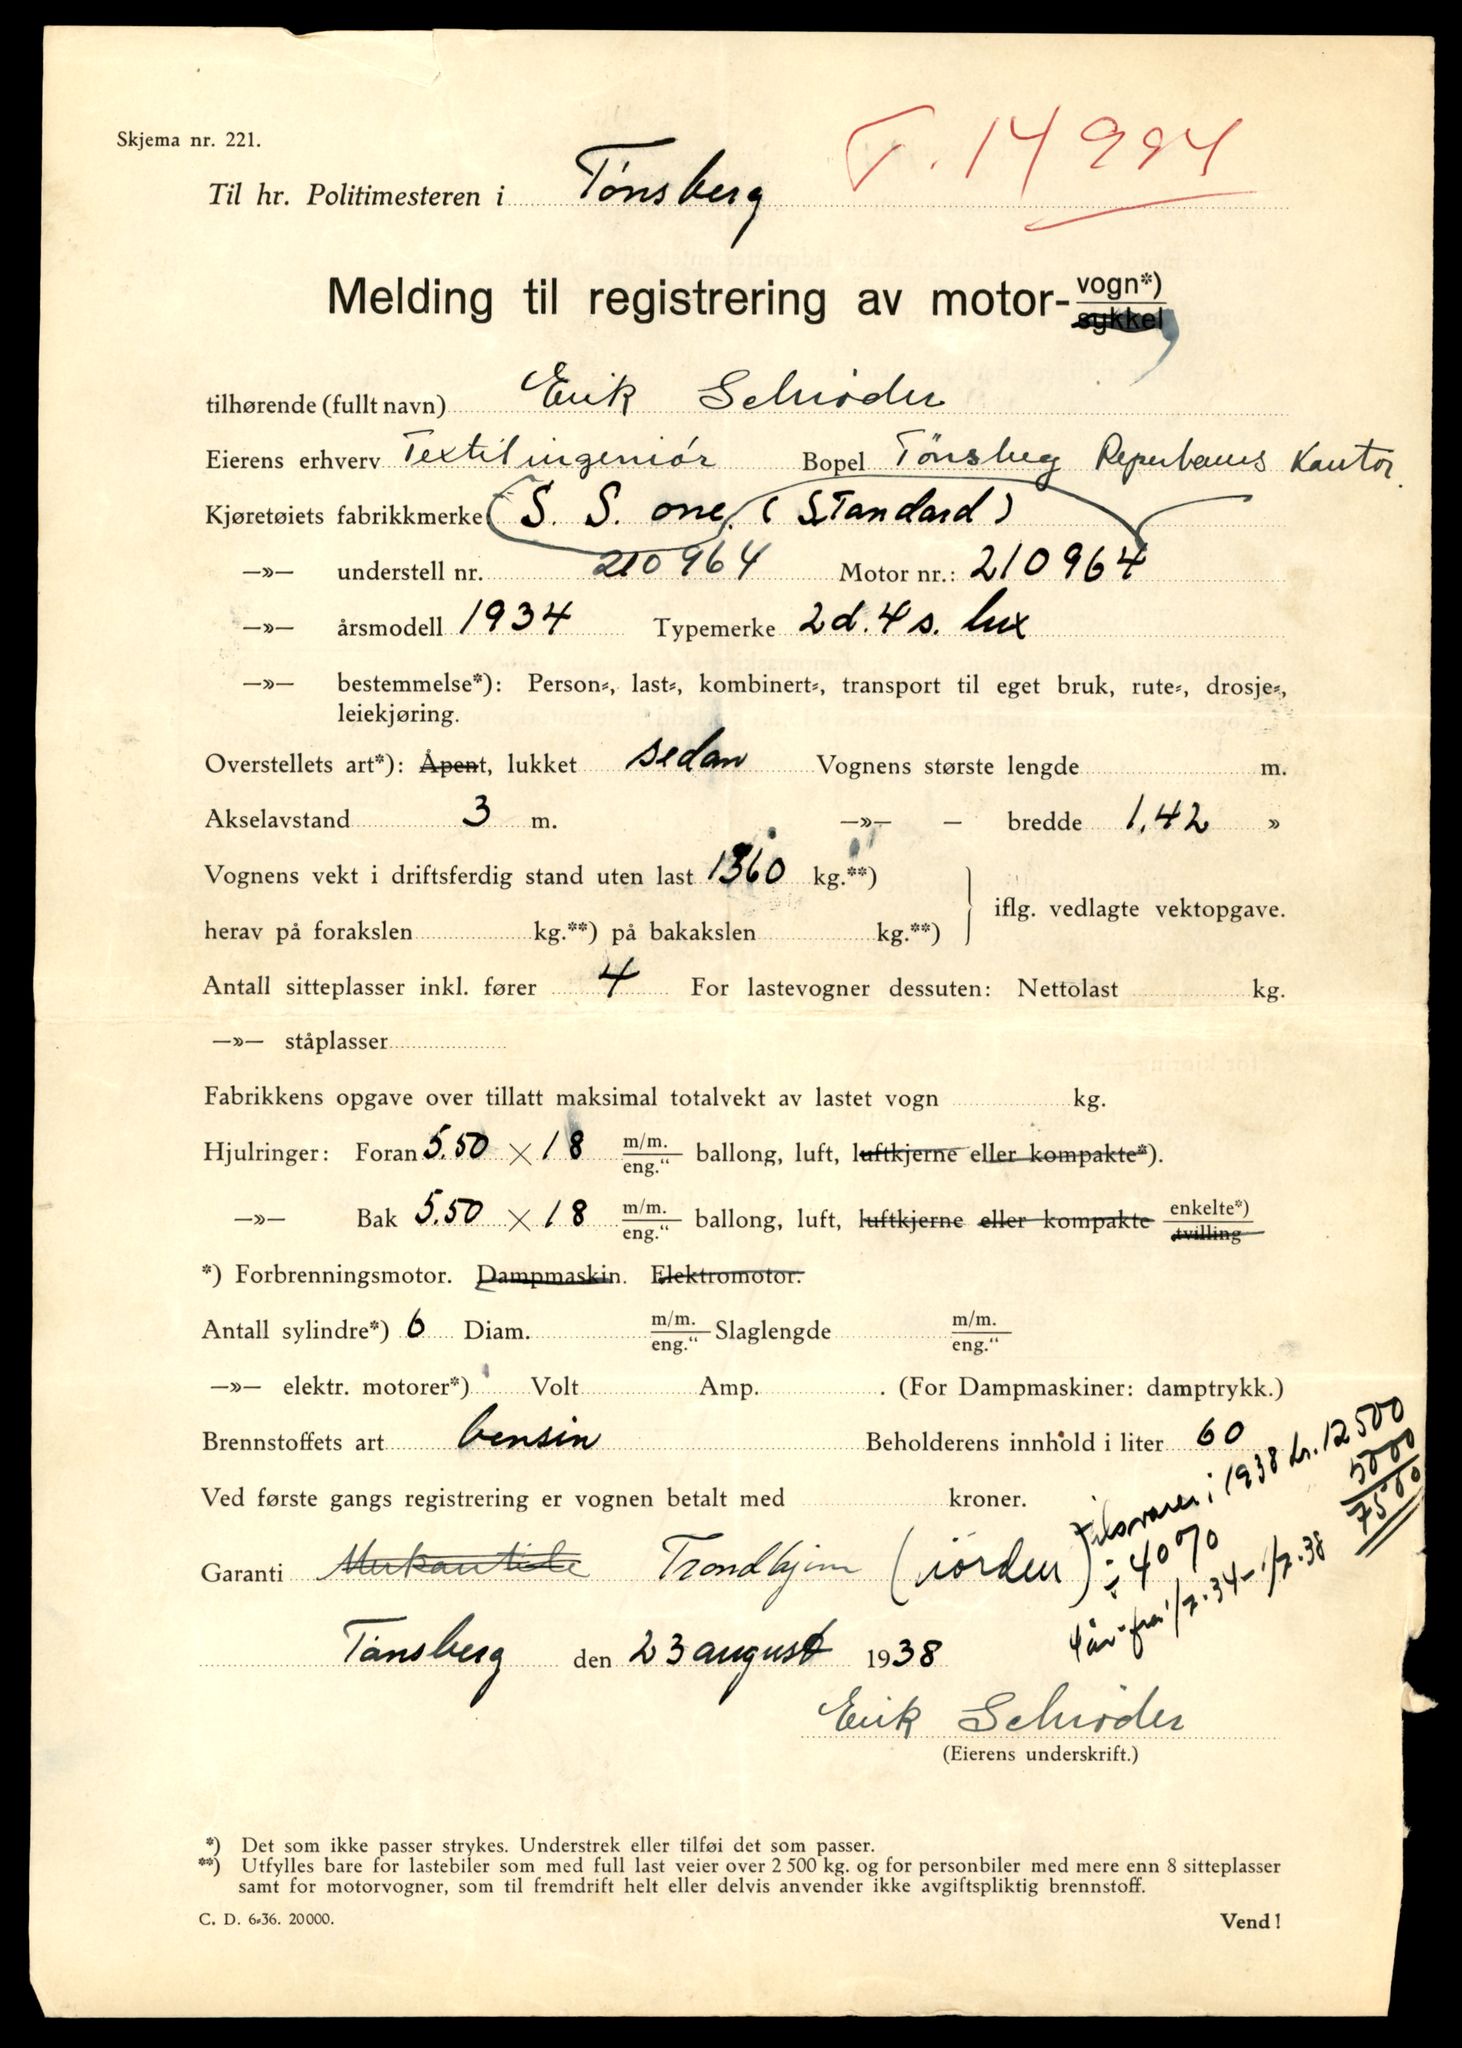 Skjema nr. 221.
T. 14994
Til hr. Politimesteren i Tønsberg
Melding til registrering av motor-vogn*)
sykkel
tilhørende (fullt navn) Erik Schrøder
Eierens erhverv Textilingeniør Bopel Tønsberg Reperbanes Kantor.
Kjøretøiets fabrikkmerke S. S. one. (Standard)
—»— understell nr. 210964 Motor nr.: 210964
—»— årsmodell 1934 Typemerke 2 d. 4 s. lux
—»— bestemmelse*): Person-, last-, kombinert-, transport til eget bruk, rute-, drosje-,
leiekjøring.
Overstellets art*): Åpent, lukket sedan Vognens største lengde m.
Akselavstand 3 m. —»— — bredde 1,42 »
Vognens vekt i driftsferdig stand uten last 1360 kg.**)
iflg. vedlagte vektopgave.
herav på forakslen kg.**) på bakakslen kg.**)
Antall sitteplasser inkl. fører 4 For lastevogner dessuten: Nettolast kg.
—»— ståplasser
Fabrikkens opgave over tillatt maksimal totalvekt av lastet vogn kg.
Hjulringer: Foran 5.50 × 18 m/m. eng." ballong, luft, luftkjerne eller kompakte*).
—»— Bak 5.50 × 18 m/m. eng." ballong, luft, luftkjerne eller kompakte enkelte*) tvilling
*) Forbrenningsmotor. Dampmaskin. Elektromotor.
Antall sylindre*) 6 Diam. m/m. eng." Slaglengde m/m. eng."
—»— elektr. motorer*) Volt Amp. . (For Dampmaskiner: damptrykk.)
Brennstoffets art bensin Beholderens innhold i liter 60
Ved første gangs registrering er vognen betalt med kroner.
tilsvarer i 1938 kr. 12500
5000
7500
÷ 40%
4 år fra 1/7-34 - 1/7-38
Garanti Merkantile Trondhjem (Jørden)
Tønsberg den 23 august 1938
Erik Schrøder
(Eierens underskrift.)
*) Det som ikke passer strykes. Understrek eller tilføi det som passer.
**) Utfylles bare for lastebiler som med full last veier over 2 500 kg. og for personbiler med mere enn 8 sitteplasser
samt for motorvogner, som til fremdrift helt eller delvis anvender ikke avgiftspliktig brennstoff.
C. D. 6-36. 20000.
Vend!